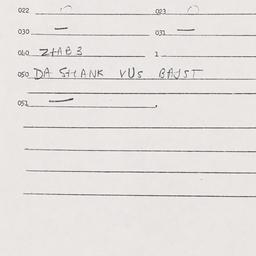 022 023
030 — 031 —
040 ZHAB3 1
050 DA SHANK VUS BAJST
051 —